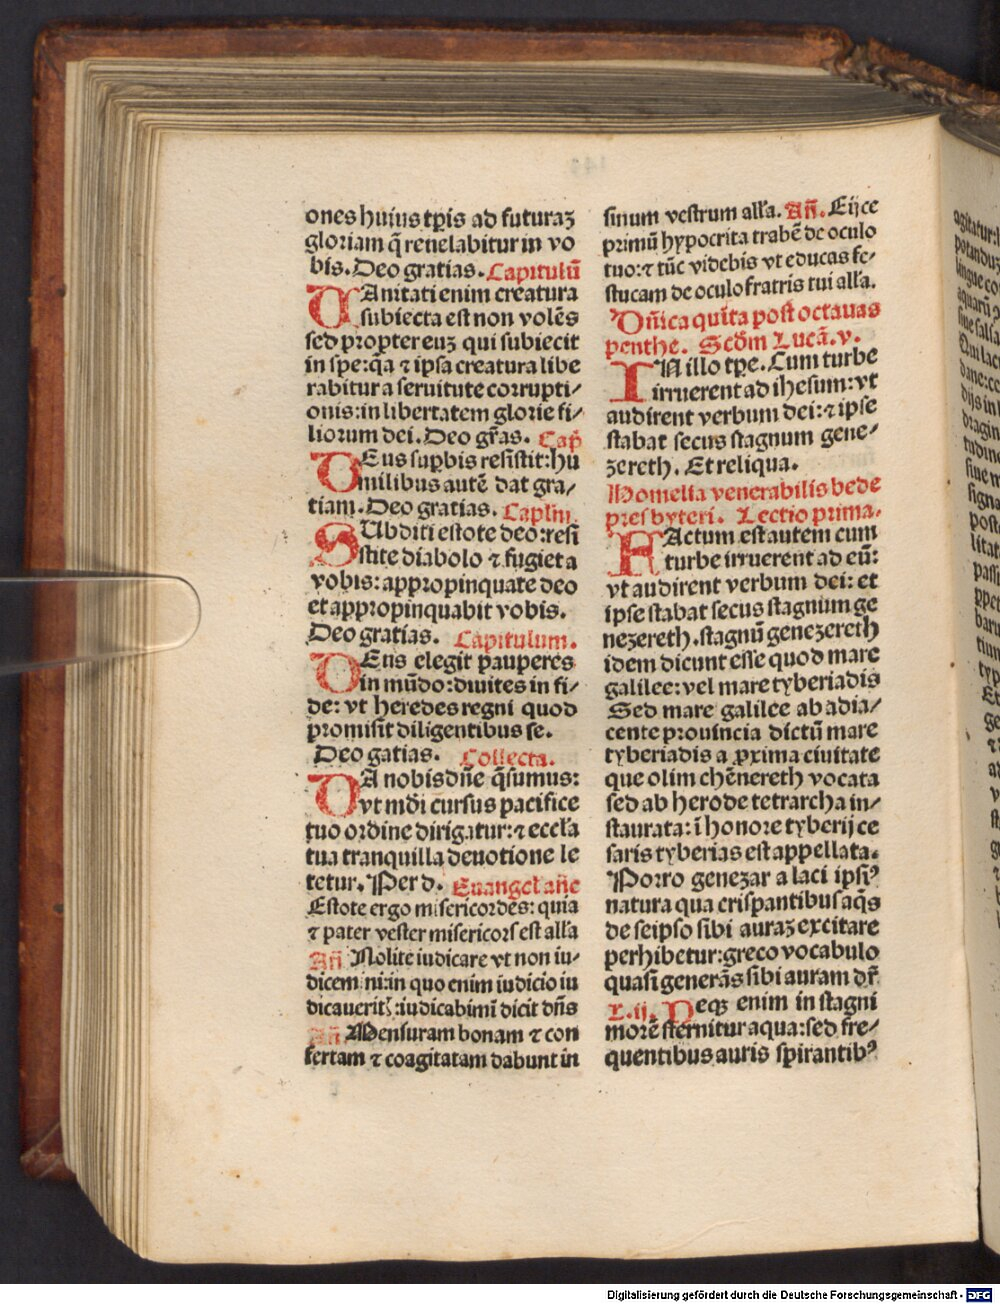 ones huius tp̄is ad futuraꝫ
gloriam q̄ reuelabitur in vo
bis. Deo gratias. Capitulū
VAnitati enim creatura
subiecta est non volēs
sed propter euꝫ qui subiecit
in spe: q̄a ⁊ ipsa creatura libe
rabitur a seruitute corrupti⸗
onis: in libertatem glorie fi⸗
liorum dei. Deo gr̄as. Cap̄
DEus sup̱bis resistit: hu
milibus autē dat gra⸗
tiam. Deo gratias. Caplm̄.
SUbditi estote deo: resi
stite diabolo ⁊ fugiet a
vobis: appropinquate deo
et appropinquabit vobis.
Deo gratias. Capitulum.
DEus elegit pauperes
in mūdo: diuites in fi⸗
de: vt heredes regni quod
promisit diligentibus se.
Deo gatias. Collecta.
DA nobis dn̄e q̄sumus:
vt mūdi cursus pacifice
tuo ordine dirigatur: ⁊ eccl̄a
tua tranquilla deuotione le
tetur. Per d. Euangel̄ an̄e
Estote ergo misericordes: quia
⁊ pater vester misericors est all̄a
An̄ Nolite iudicare vt non iu⸗
dicemini: in quo enim iudicio iu
dicaueritꝭ: iudicabimī dicit dn̄s
An̄ Mensuram bonam ⁊ con
fertam ⁊ coagitatam dabunt in
sinum vestrum all̄a. An̄. Eijce
primū hypocrita trabē de oculo
tuo: ⁊ tūc videbis vt educas fe⸗
stucam de oculo fratris tui all̄a.
Dn̄ica quīta post octauas
penthe. Scd̄m Lucā. v.
IN illo tp̄e. Cum turbe
irruerent ad ihesum: vt
audirent verbum dei: ⁊ ipse
stabat secus stagnum gene⸗
zereth. Et reliqua.
Homelia venerabilis bede
presbyteri. Lectio prima.
FActum est autem cum
turbe irruerent ad eū:
vt audirent verbum dei: et
ipse stabat secus stagnum ge
nezereth. stagnū genezereth
idem dicunt esse quod mare
galilee: vel mare tyberiadis
Sed mare galilee ab adia⸗
cente prouincia dictū mare
tyberiadis a ꝓxima ciuitate
que olim chēnereth vocata
sed ab herode tetrarcha in⸗
staurata: ī honore tyberij ce
saris tyberias est appellata.
Porro genezar a laci ipsiꝰ
natura qua crispantibus aq̄s
de seipso sibi auraꝫ excitare
perhibetur: greco vocabulo
quasi generās sibi auram dr̄.
L. ij. Neqꝫ enim in stagni
morē sternitur aqua: sed fre⸗
quentibus auris spirantibꝰ
Digitalisierung gefördert durch die Deutsche Forschungsgemeinschaft - DFG